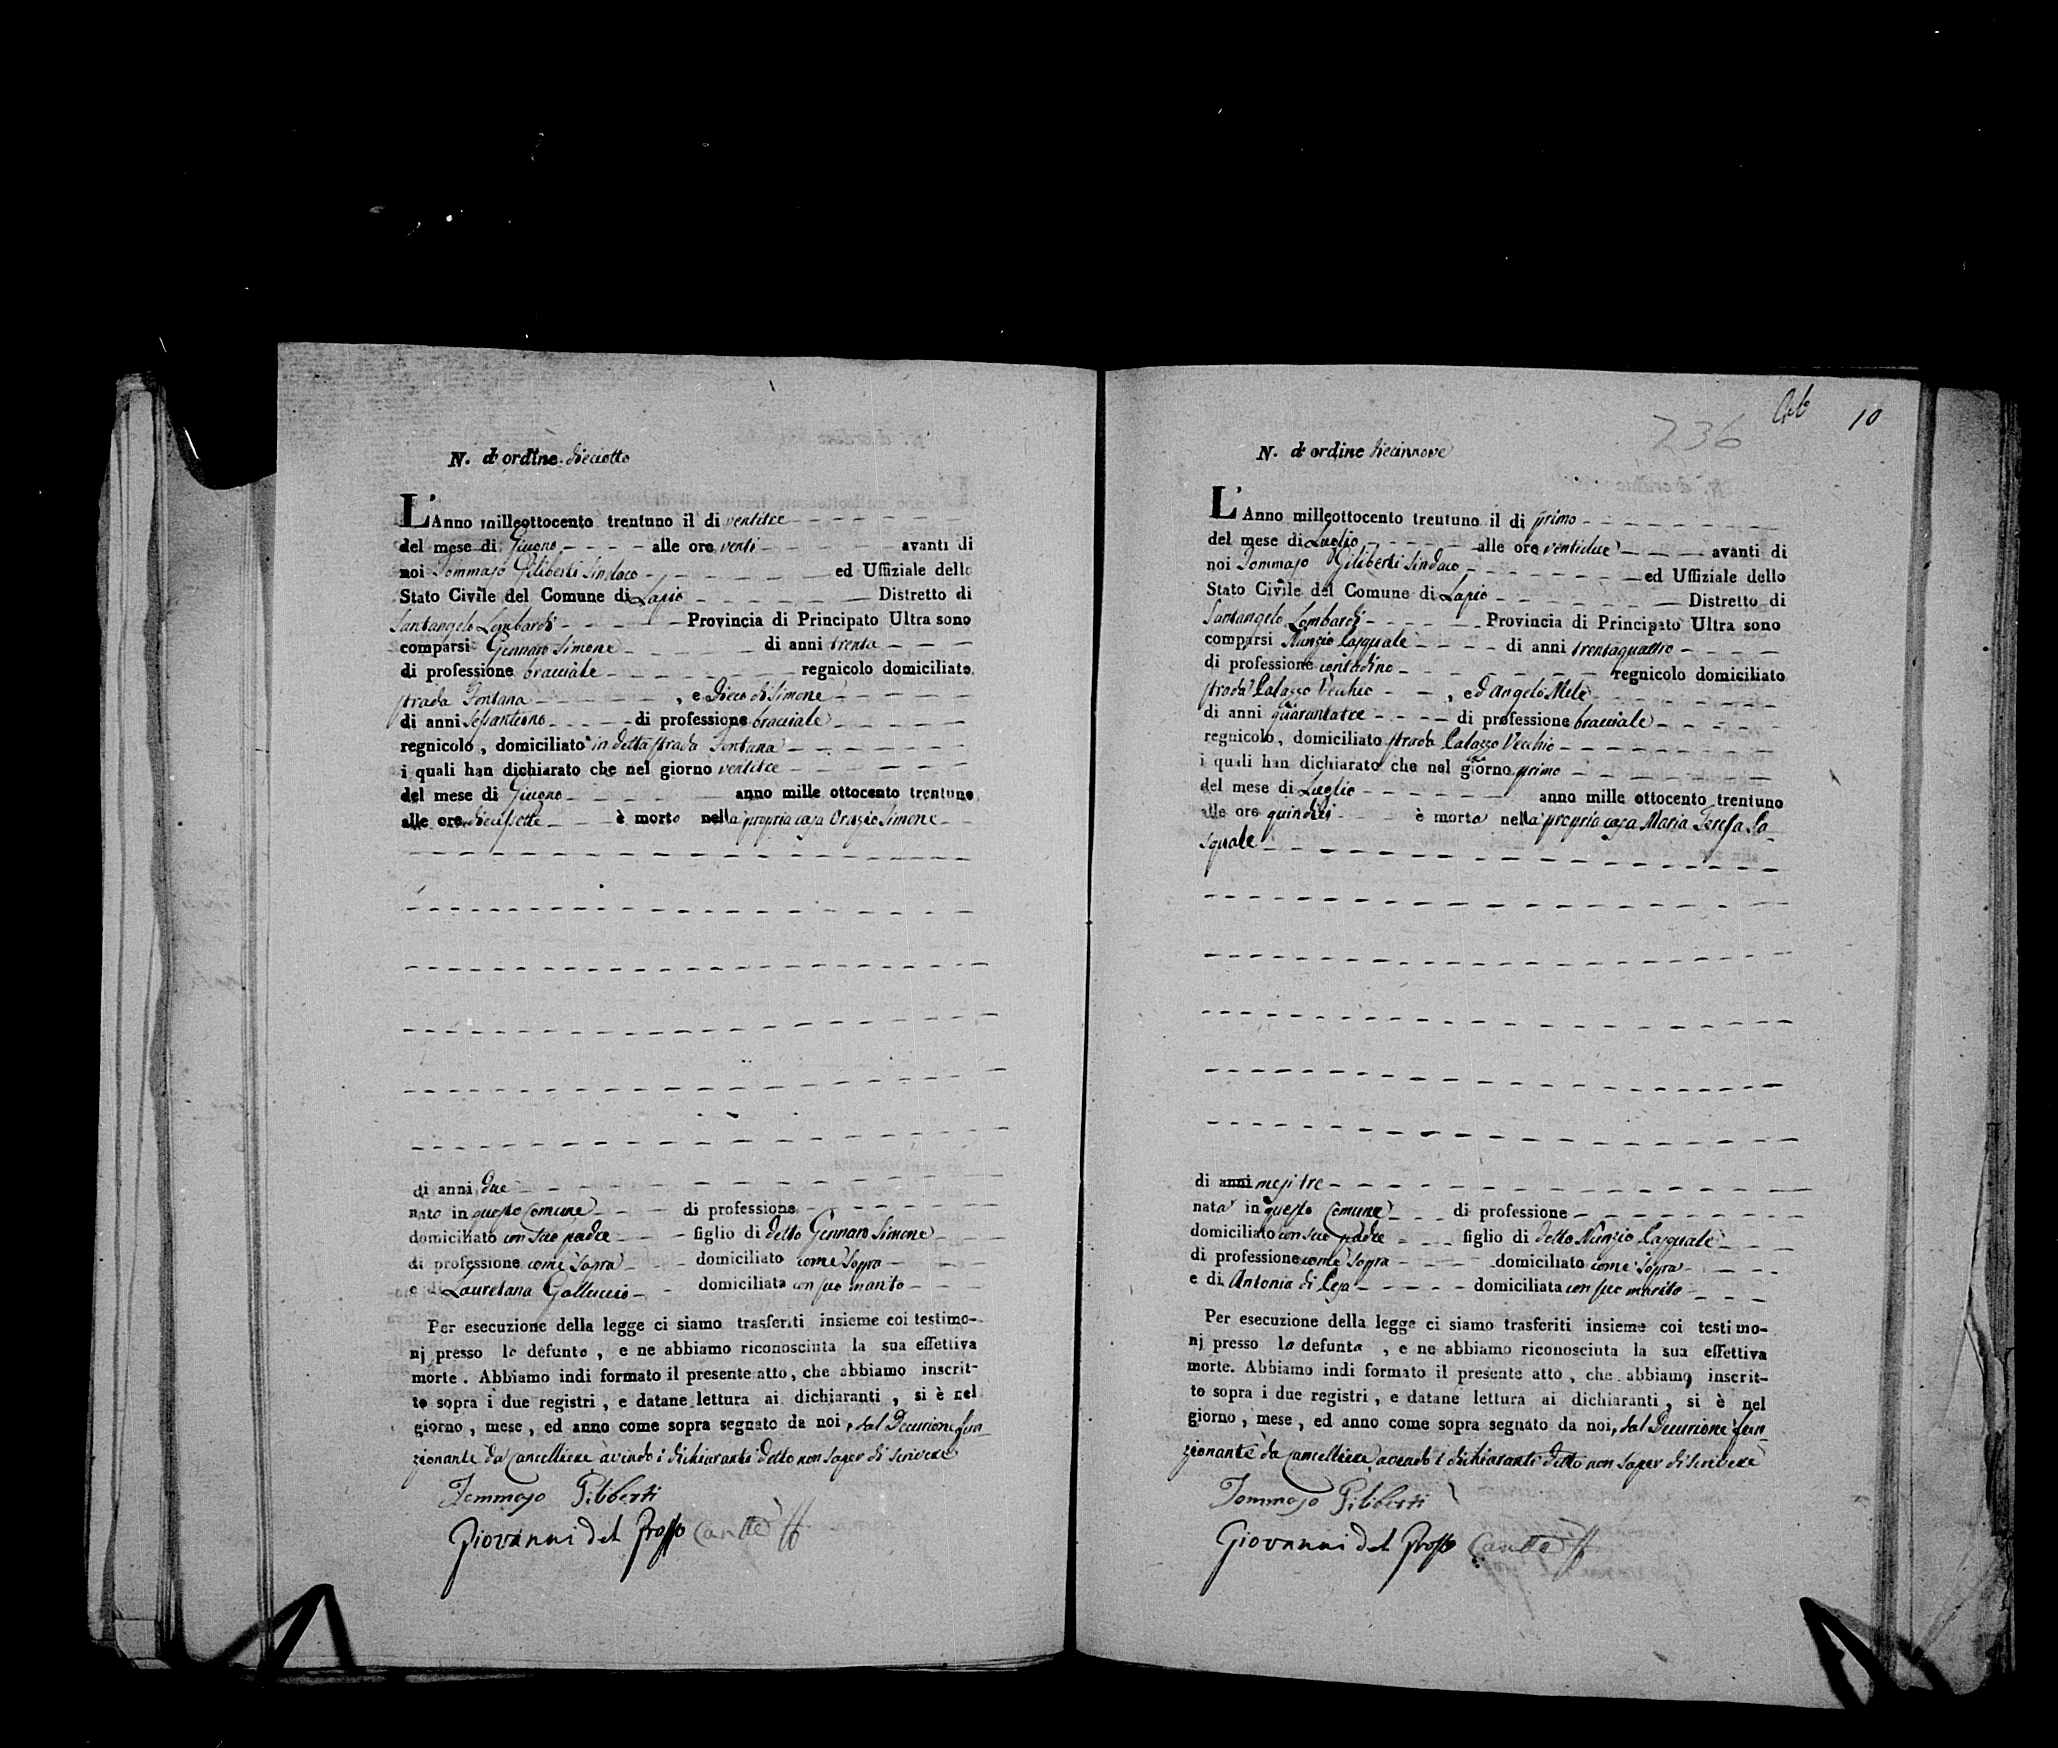 N. d'ordine dieciotto
L'Anno milleottocento trentuno il di ventitre
del mese di Giugno alle ore venti avanti di
noi Tommaso Giliberti Sindaco ed Uffiziale dello
Stato Civile del Comune di Lapio Distretto di
Santangelo Lombardi Provincia di Principato Ultra sono
comparsi Gennaro Simone di anni trenta
di professione bracciale regnicolo domiciliato
strada Fontana , e Dieco di Simone
di anni sessantuno di professione bracciale
regnicolo, domiciliato in detta strada Fontana
i quali han dichiarato che nel giorno ventitre
del mese di Giugno anno mille ottocento trentuno
alle ore diecisette è morto nella propria casa Orazio Simone
di anni due
nato in questo Comune di professione
domiciliato con suo padre figlio di detto Gennaro Simone
di professione come sopra domiciliato come sopra
e di Lauretana Galluccio domiciliata con suo marito
Per esecuzione della legge ci siamo trasferiti insieme coi testimo-
nj presso lo defunto , e ne abbiamo riconosciuta la sua effettiva
morte. Abbiamo indi formato il presente atto, che abbiamo inscrit-
to sopra i due registri, e datane lettura ai dichiaranti, si è nel
giorno, mese, ed anno come sopra segnato da noi, dal Decurione fun-
zionante da Cancelliere avendo i dichiaranti detto non saper di scrivere
Tommaso Giliberti
Giovanni del Grosso
10
236
N. d'ordine diecinnove
L'Anno milleottocento trentuno il di primo
del mese di Luglio alle ore ventidue avanti di
noi Tommaso Giliberti Sindaco ed Uffiziale dello
Stato Civile del Comune di Lapio Distretto di
Santangelo Lombardi Provincia di Principato Ultra sono
comparsi Nunzio Pasquale di anni trentaquattro
di professione contadino regnicolo domiciliato
strada Palazzo Vecchio , e d'Angelo Mele
di anni quarantatre di professione bracciale
regnicolo, domiciliato strada Palazzo Vecchio
i quali han dichiarato che nel giorno primo
del mese di Luglio anno mille ottocento trentuno
alle ore quindici è morta nella propria casa Maria Teresa Pa-
squale
di anni mesi tre
nata in questo Comune di professione
domiciliato con suo padre figlio di detto Nunzio Pasquale
di professione come sopra domiciliato come sopra
e di Antonia di domiciliata con suo marito
Per esecuzione della legge ci siamo trasferiti insieme coi testimo-
nj presso la defunta , e ne abbiamo riconosciuta la sua effettiva
morte. Abbiamo indi formato il presente atto, che abbiamo inscrit-
to sopra i due registri, e datane lettura ai dichiaranti, si è nel
giorno, mese, ed anno come sopra segnato da noi, dal Decurione fun-
zionante da Cancelliere avendo i dichiaranti detto non saper di scrivere
Tommaso Giliberti
Giovanni del Grosso